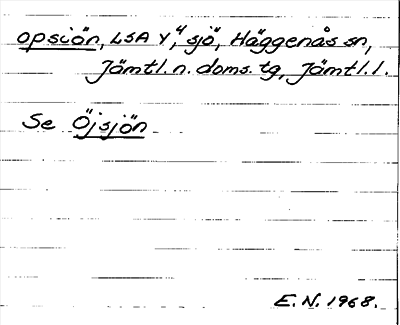 opsiön, LSA Y, "sjö, Häggenås sn,
Jämtl. n. doms. tg, Jämtl. l.
Se Öjsjön
E. N. 1968.